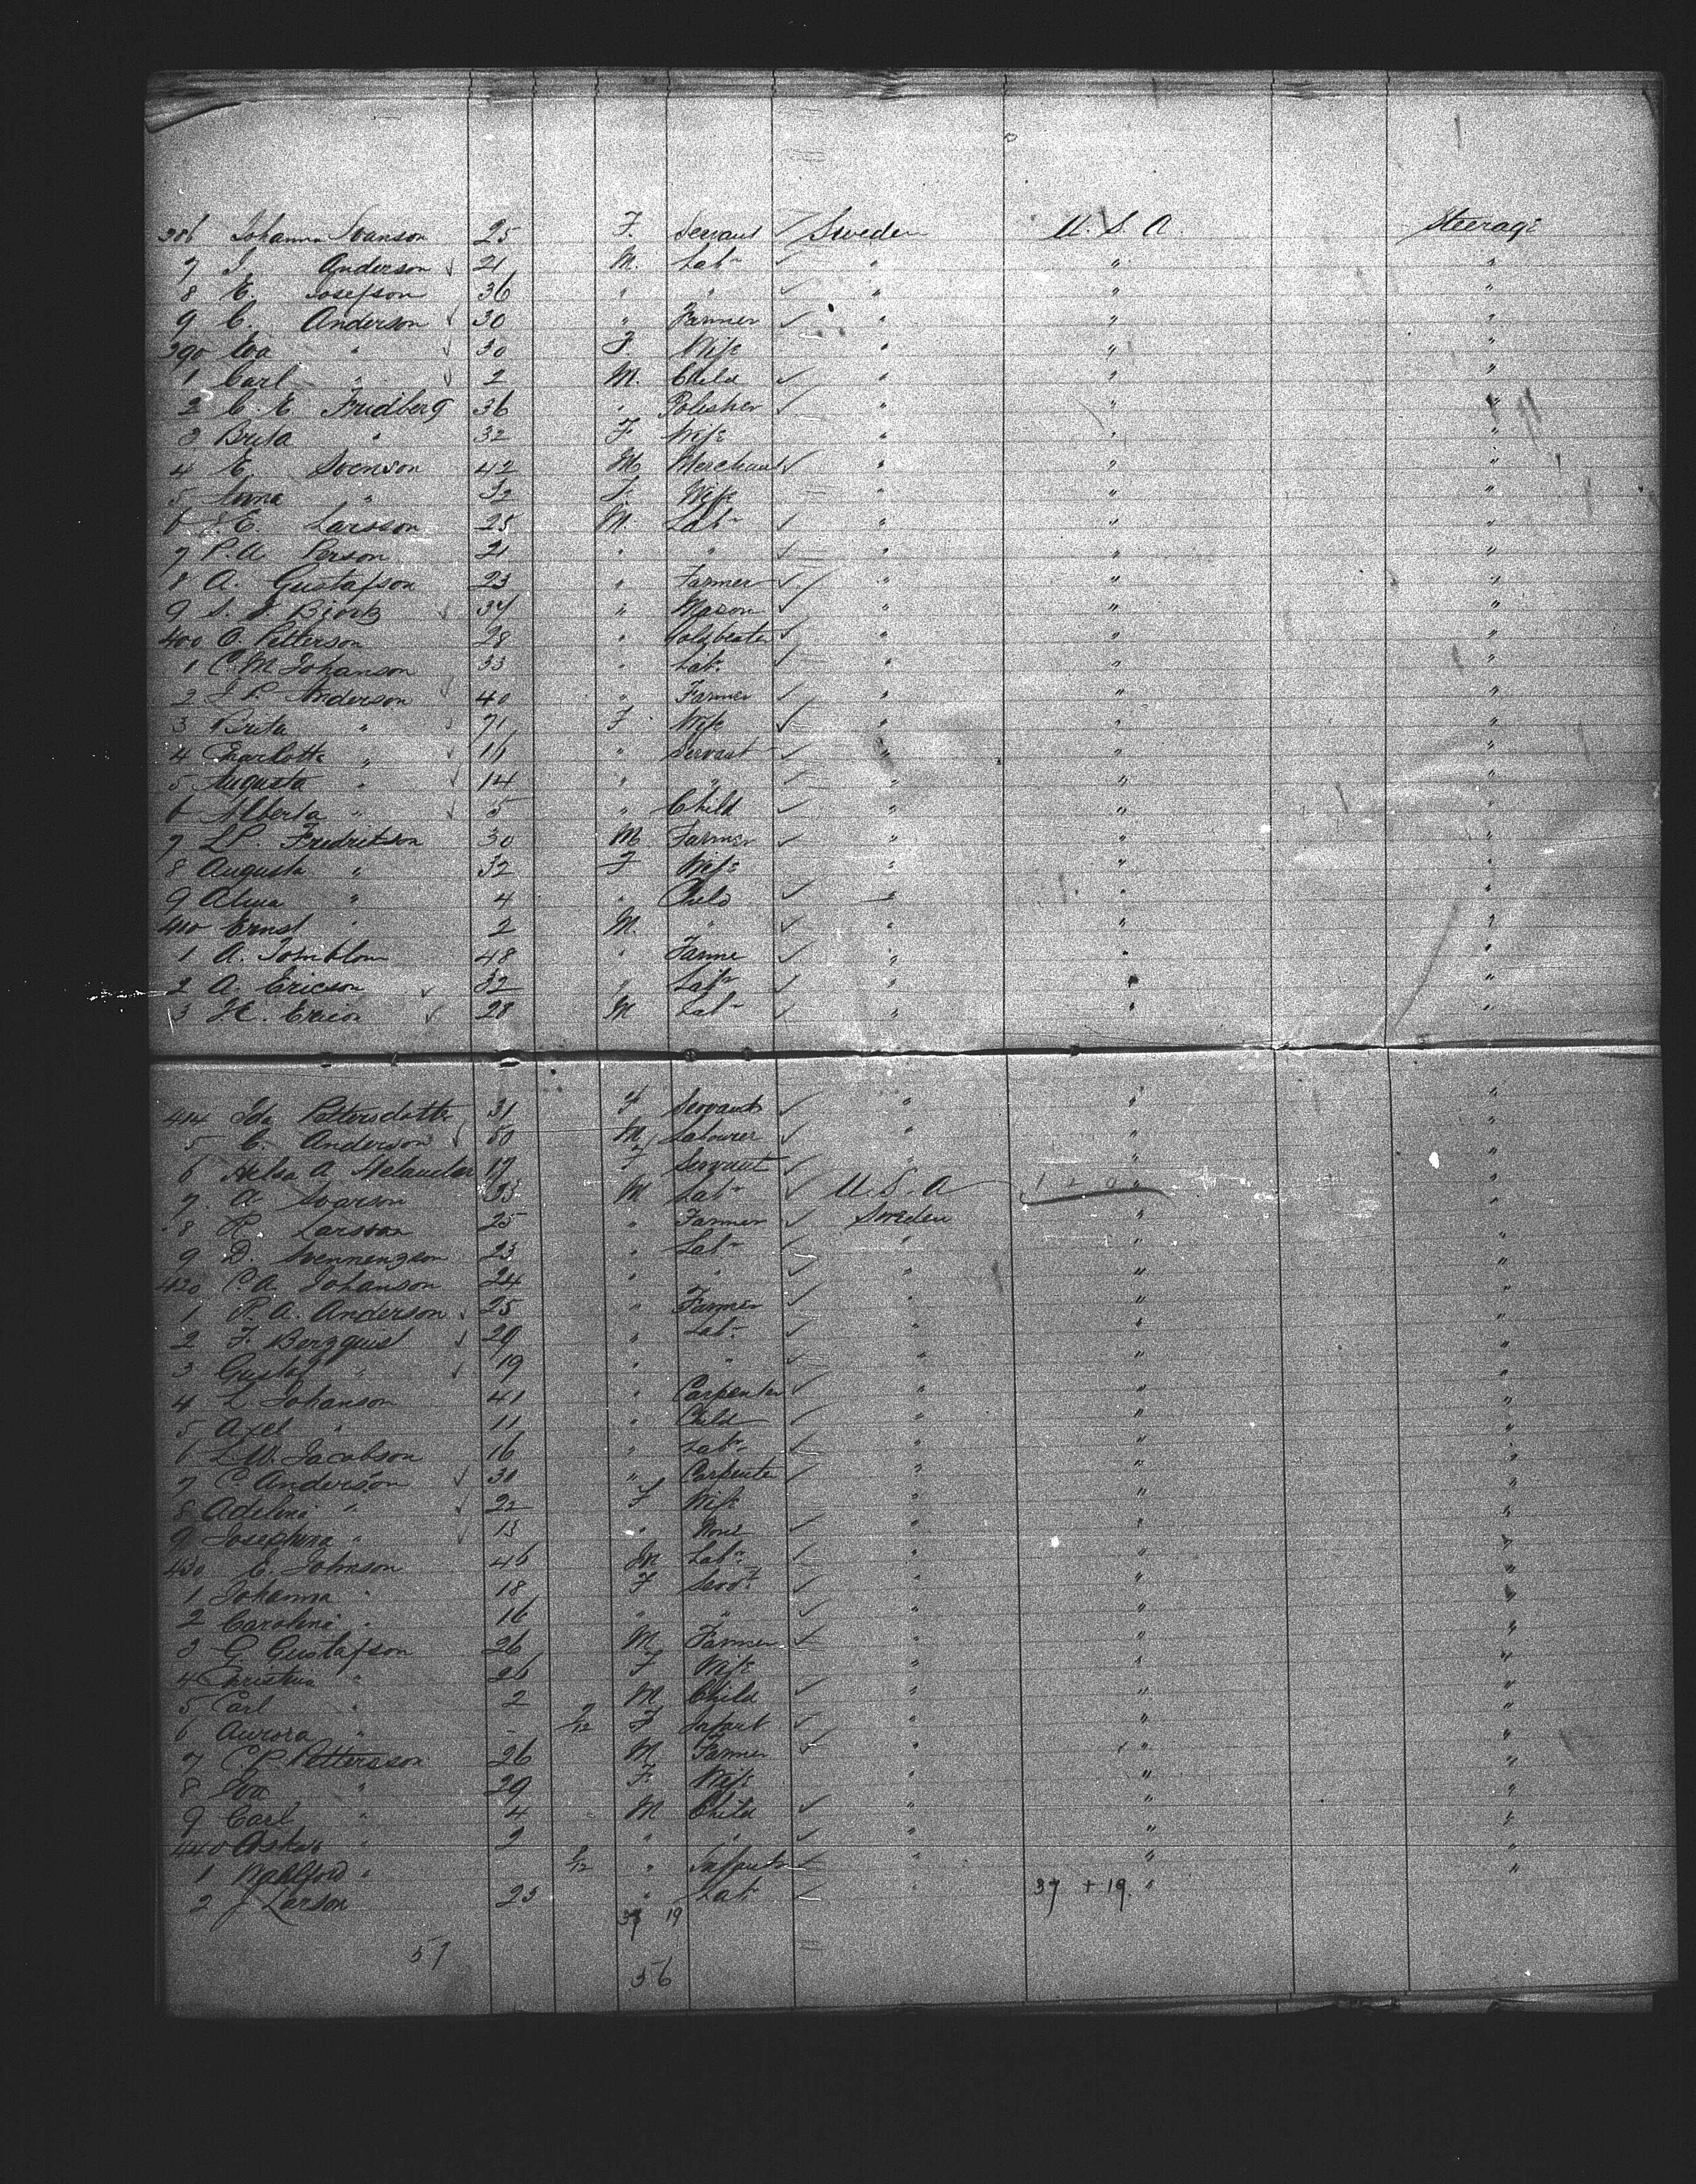 386 Johanna Svanson 25 F. Servant ✓ Sweden U. S. A. Steerage
7 J. Anderson ✓ 21 M. Lab^r ✓ " " "
8 E. Josefson 36 " " ✓ " " "
9 C. Anderson ✓ 30 " Farmer ✓ " " "
390 Eva " ✓ 30 F. Wife " " "
1 Carl " ✓ 2 M. Child ✓ " " "
2 C. E. Fridberg 36 " Polisher ✓ " " "
3 Brita " 32 F. Wife " " "
4 E. Svenson 42 M Merchant ✓ " " "
5 Anna " 32 F. Wife " " "
6 E. Larsson 25 M. Lab^r ✓ " " "
7 P. A. Person 21 " " ✓ " " "
8 A. Gustafson 23 " Farmer ✓ " " "
9 S. J. Bjork ✓ 34 " Mason ✓ " " "
400 O. Petterson 28 " Goldbeater ✓ " " "
1 C. M. Johanson 33 " Lab^r ✓ " " "
2 J. P. Anderson ✓ 40 " Farmer ✓ " " "
3 Brita " ✓ 71 F. Wife ✓ " " "
4 Charlotta " ✓ 16 " Servant ✓ " " "
5 Augusta " ✓ 14 " " ✓ " " "
6 Alberta " ✓ 5 " Child ✓ " " "
7 L. P. Fredrikson 30 M Farmer ✓ " " "
8 Augusta " 32 F Wife " " "
9 Alma " 4 " Child ✓ " " "
410 Ernst " 2 M. " ✓ " " "
1 A. Tornblom 48 " Farme ✓ " " "
2 A. Ericson ✓ 32 " Lab^r ✓ " " "
3 Ericson ✓ 28 M Lab^r ✓ " " "
414 Ida Pettersdotter 31 F Servant ✓ " " "
5 C. Anderson ✓ 50 M Labourer ✓ " " "
6 A. 17 F Servant ✓ " " "
7 A. 33 M Lab^r ✓ U. S. A " "
8 P. Larsson 25 " Farmer ✓ Sweden " "
9 D. Svennengson 23 " Lab^r ✓ " " "
420 C. A. Johanson 24 " " ✓ " " "
1 P. A. Anderson ✓ 25 " Farmer ✓ " " "
2 F. Bergquist ✓ 29 " Lab^r ✓ " " "
3 Gustaf " ✓ 19 " " ✓ " " "
4 L. Johanson 41 " Carpenter ✓ " " "
5 Axel " 11 " Child ✓ " " "
6 L. W. Jacobson 16 " Lab^r ✓ " " "
7 C. Anderson ✓ 30 " Carpente ✓ " " "
8 Adelina " ✓ 22 F Wife " " "
9 Josephina " ✓ 13 " None ✓ " " "
430 E. Johnson 46 M Lab^r ✓ " " "
1 Johanna " 18 F Serv^t ✓ " " "
2 Carolini " 16 " " ✓ " " "
3 G. Gustafson 26 M Farmer ✓ " " "
4 Christina " 26 F Wife " " "
5 Carl " 2 M Child ✓ " " "
6 Aurora " - F Infant ✓ " " "
7 C. P. Petterson 26 M Farmer ✓ " " "
8 Eva " 29 F. Wife " " "
9 Carl " 4 M Child ✓ " " "
440 Oskar " 2 " " ✓ " " "
1 " " Infant ✓ " " "
2 J Larson 23 " Lab^r ✓ " 37 + 19. "
37 19
57
56